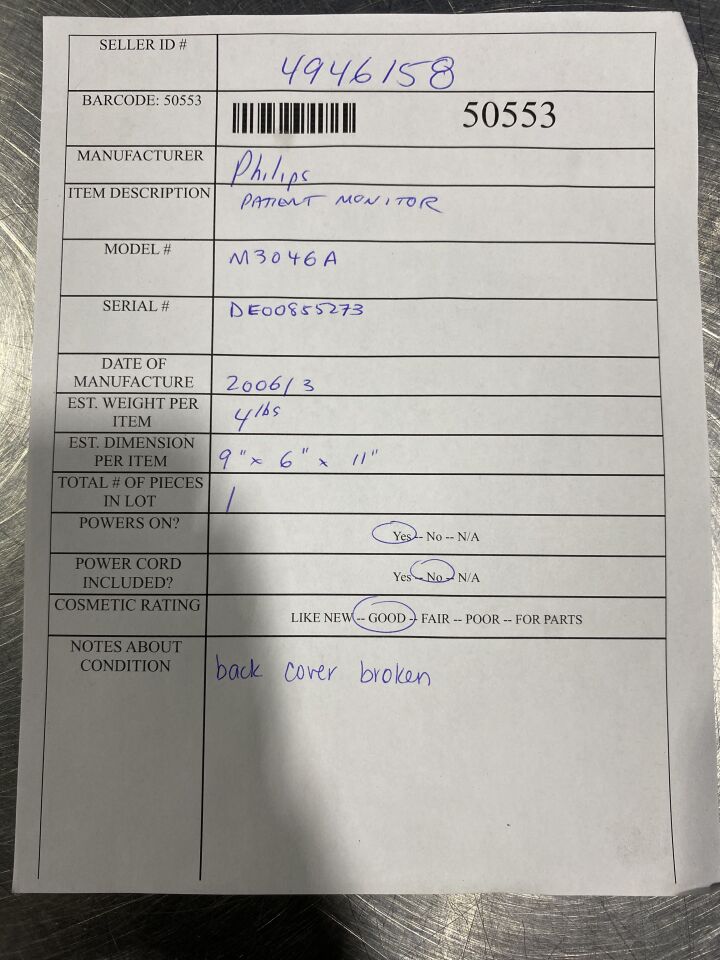 SELLER ID #
4946158
BARCODE: 50553
50553
MANUFACTURER
Philips
ITEM DESCRIPTION
PATIENT MONITOR
MODEL #
M3046A
SERIAL #
DE00855273
DATE OF
MANUFACTURE
2006/3
EST. WEIGHT PER
ITEM
4 lbs
EST. DIMENSION
PER ITEM
9" x 6" x 11"
TOTAL # OF PIECES
IN LOT
1
POWERS ON?
Yes -- No -- N/A
POWER CORD
INCLUDED?
Yes -- No -- N/A
COSMETIC RATING
LIKE NEW -- GOOD -- FAIR -- POOR -- FOR PARTS
NOTES ABOUT
CONDITION
back cover broken